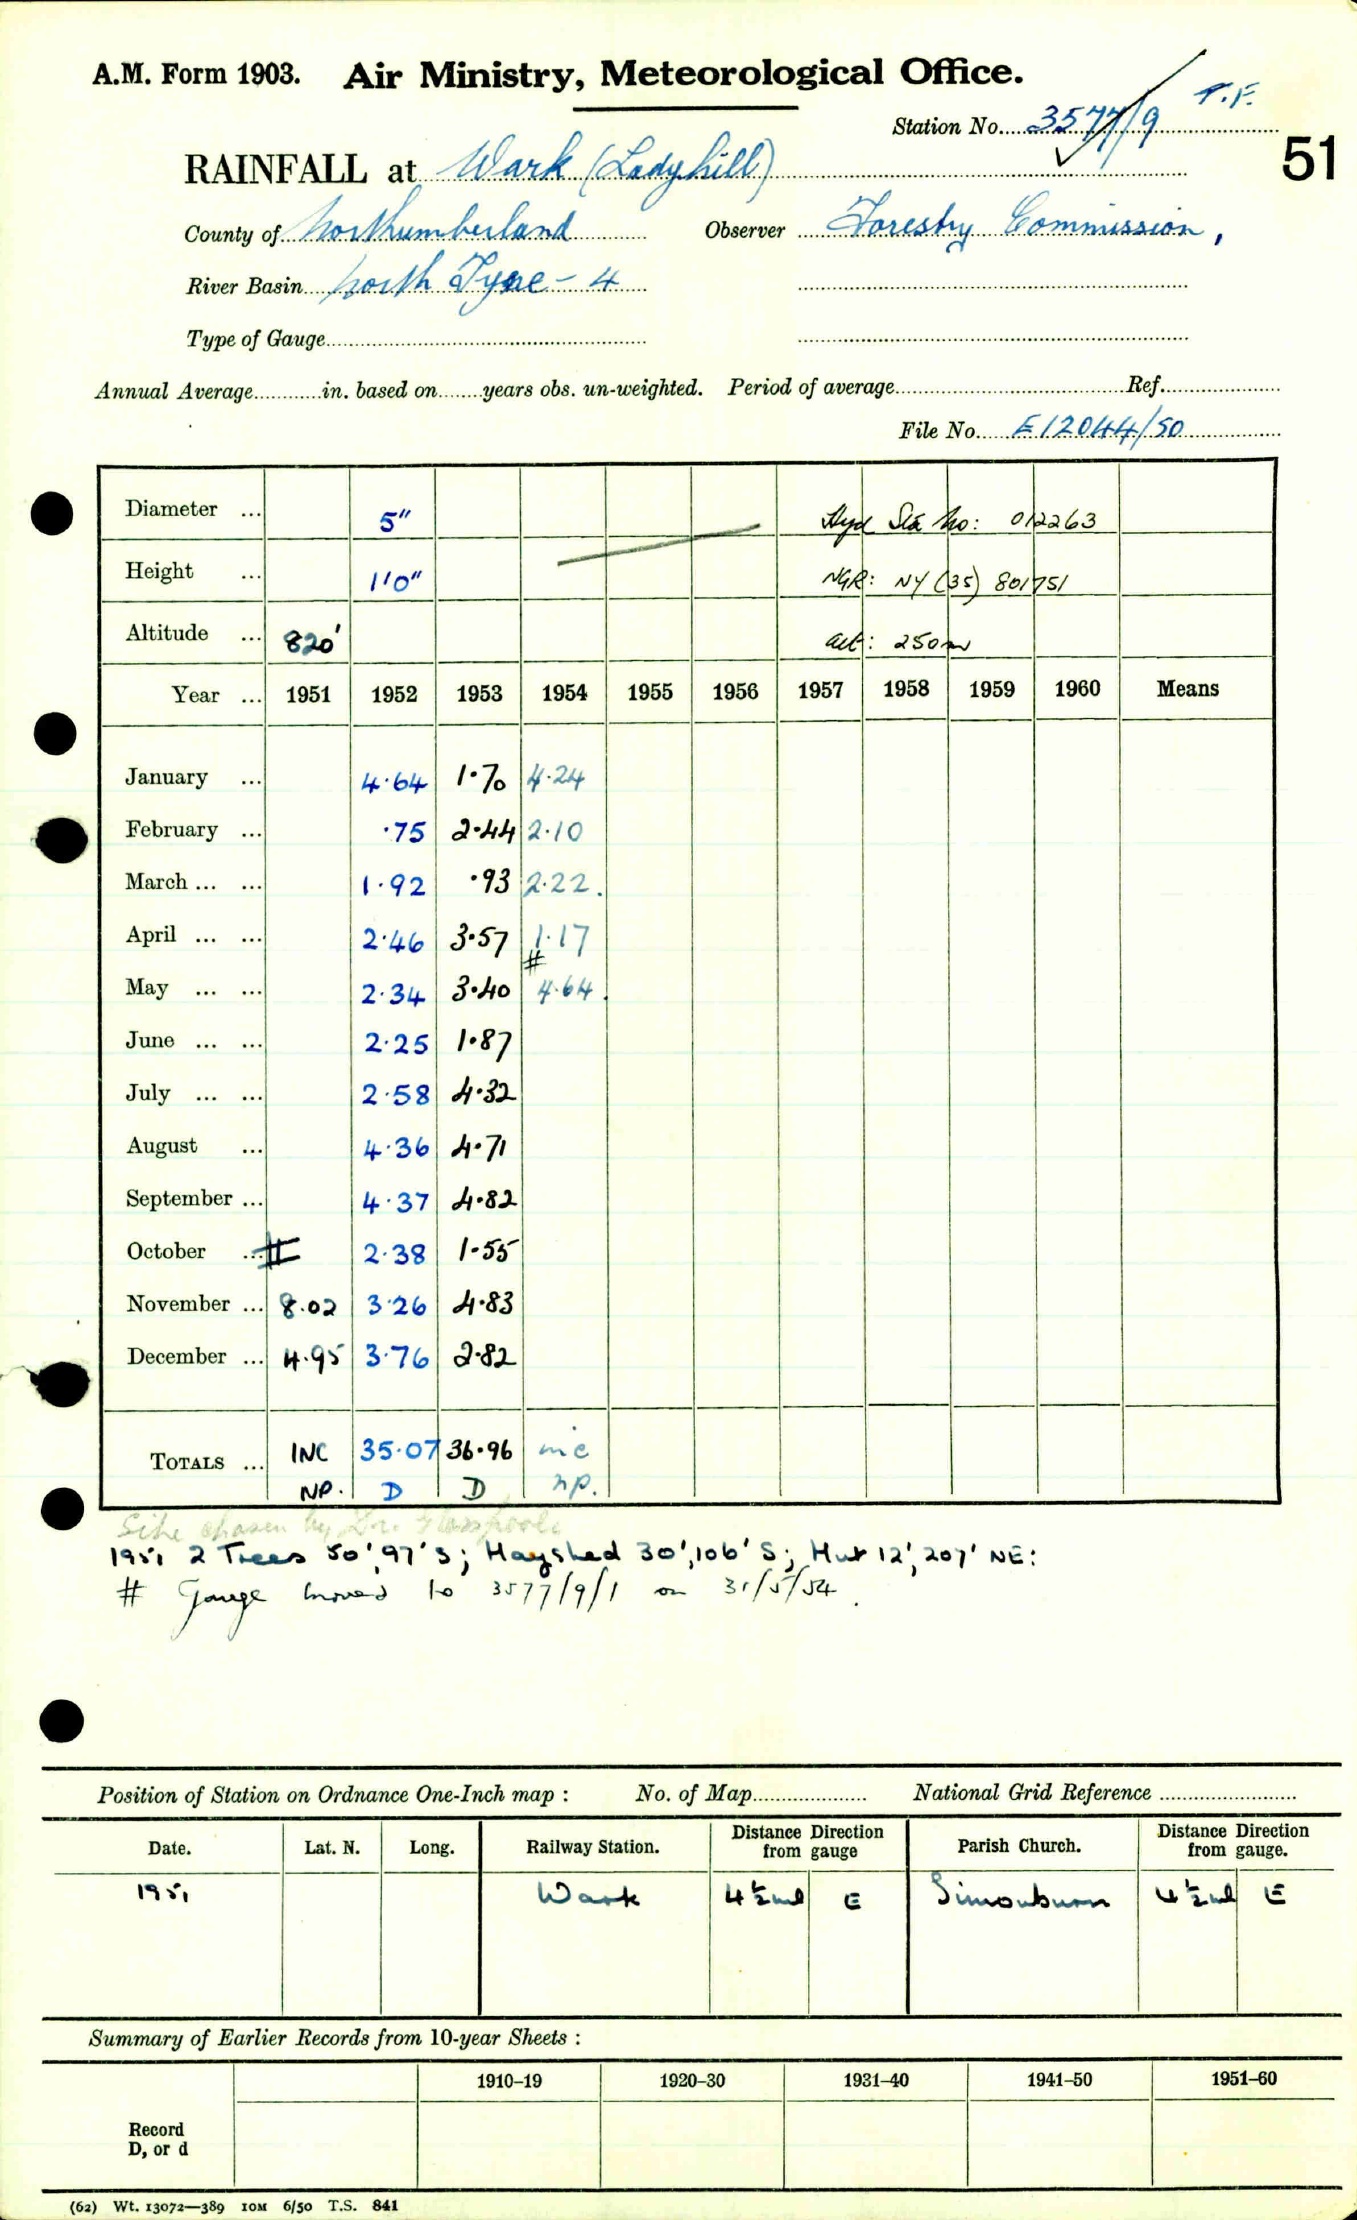 A.M. Form 1903. Air Ministry, Meteorological Office.
T.F.
Station No. 3577/9
51
RAINFALL at Wark (Ladyhill)
County of Northumberland Observer Forestry Commission,
River Basin North Tyne - 4
Type of Gauge
Annual Average in. based on years obs. un-weighted. Period of average Ref.
File No. E12044/50
Diameter ... 5" Hyd Sta No: 012263
Height ... 1'0" NGR: NY (35) 801751
Altitude ... 820' alt: 250m
Year ... 1951 1952 1953 1954 1955 1956 1957 1958 1959 1960 Means
January ... 4.64 1.70 4.24
February ... .75 2.44 2.10
March ... ... 1.92 .93 2.22.
April ... ... 2.46 3.57 1.17
#
May ... ... 2.34 3.40 4.64.
June ... ... 2.25 1.87
July ... ... 2.58 4.32
August ... 4.36 4.71
September ... 4.37 4.82
October ... # 2.38 1.55
November ... 8.02 3.26 4.83
December ... 4.95 3.76 2.82
TOTALS ... INC 35.07 36.96 inc
NP. D D np.
Site chosen by Dr. Glasspoole
1951 2 Trees 50', 97' S; Hayshed 30', 106' S; Hut 12', 207' NE:
# Gauge moved to 3577/9/1 on 31/5/54.
Position of Station on Ordnance One-Inch map : No. of Map National Grid Reference
Date. Lat. N. Long. Railway Station. Distance Direction from gauge Parish Church. Distance Direction from gauge.
1951 Wark 4½ml E Simonburn 4½ml E
Summary of Earlier Records from 10-year Sheets :
1910–19 1920–30 1931–40 1941–50 1951–60
Record
D, or d
(62) Wt. 13072—389 10M 6/50 T.S. 841